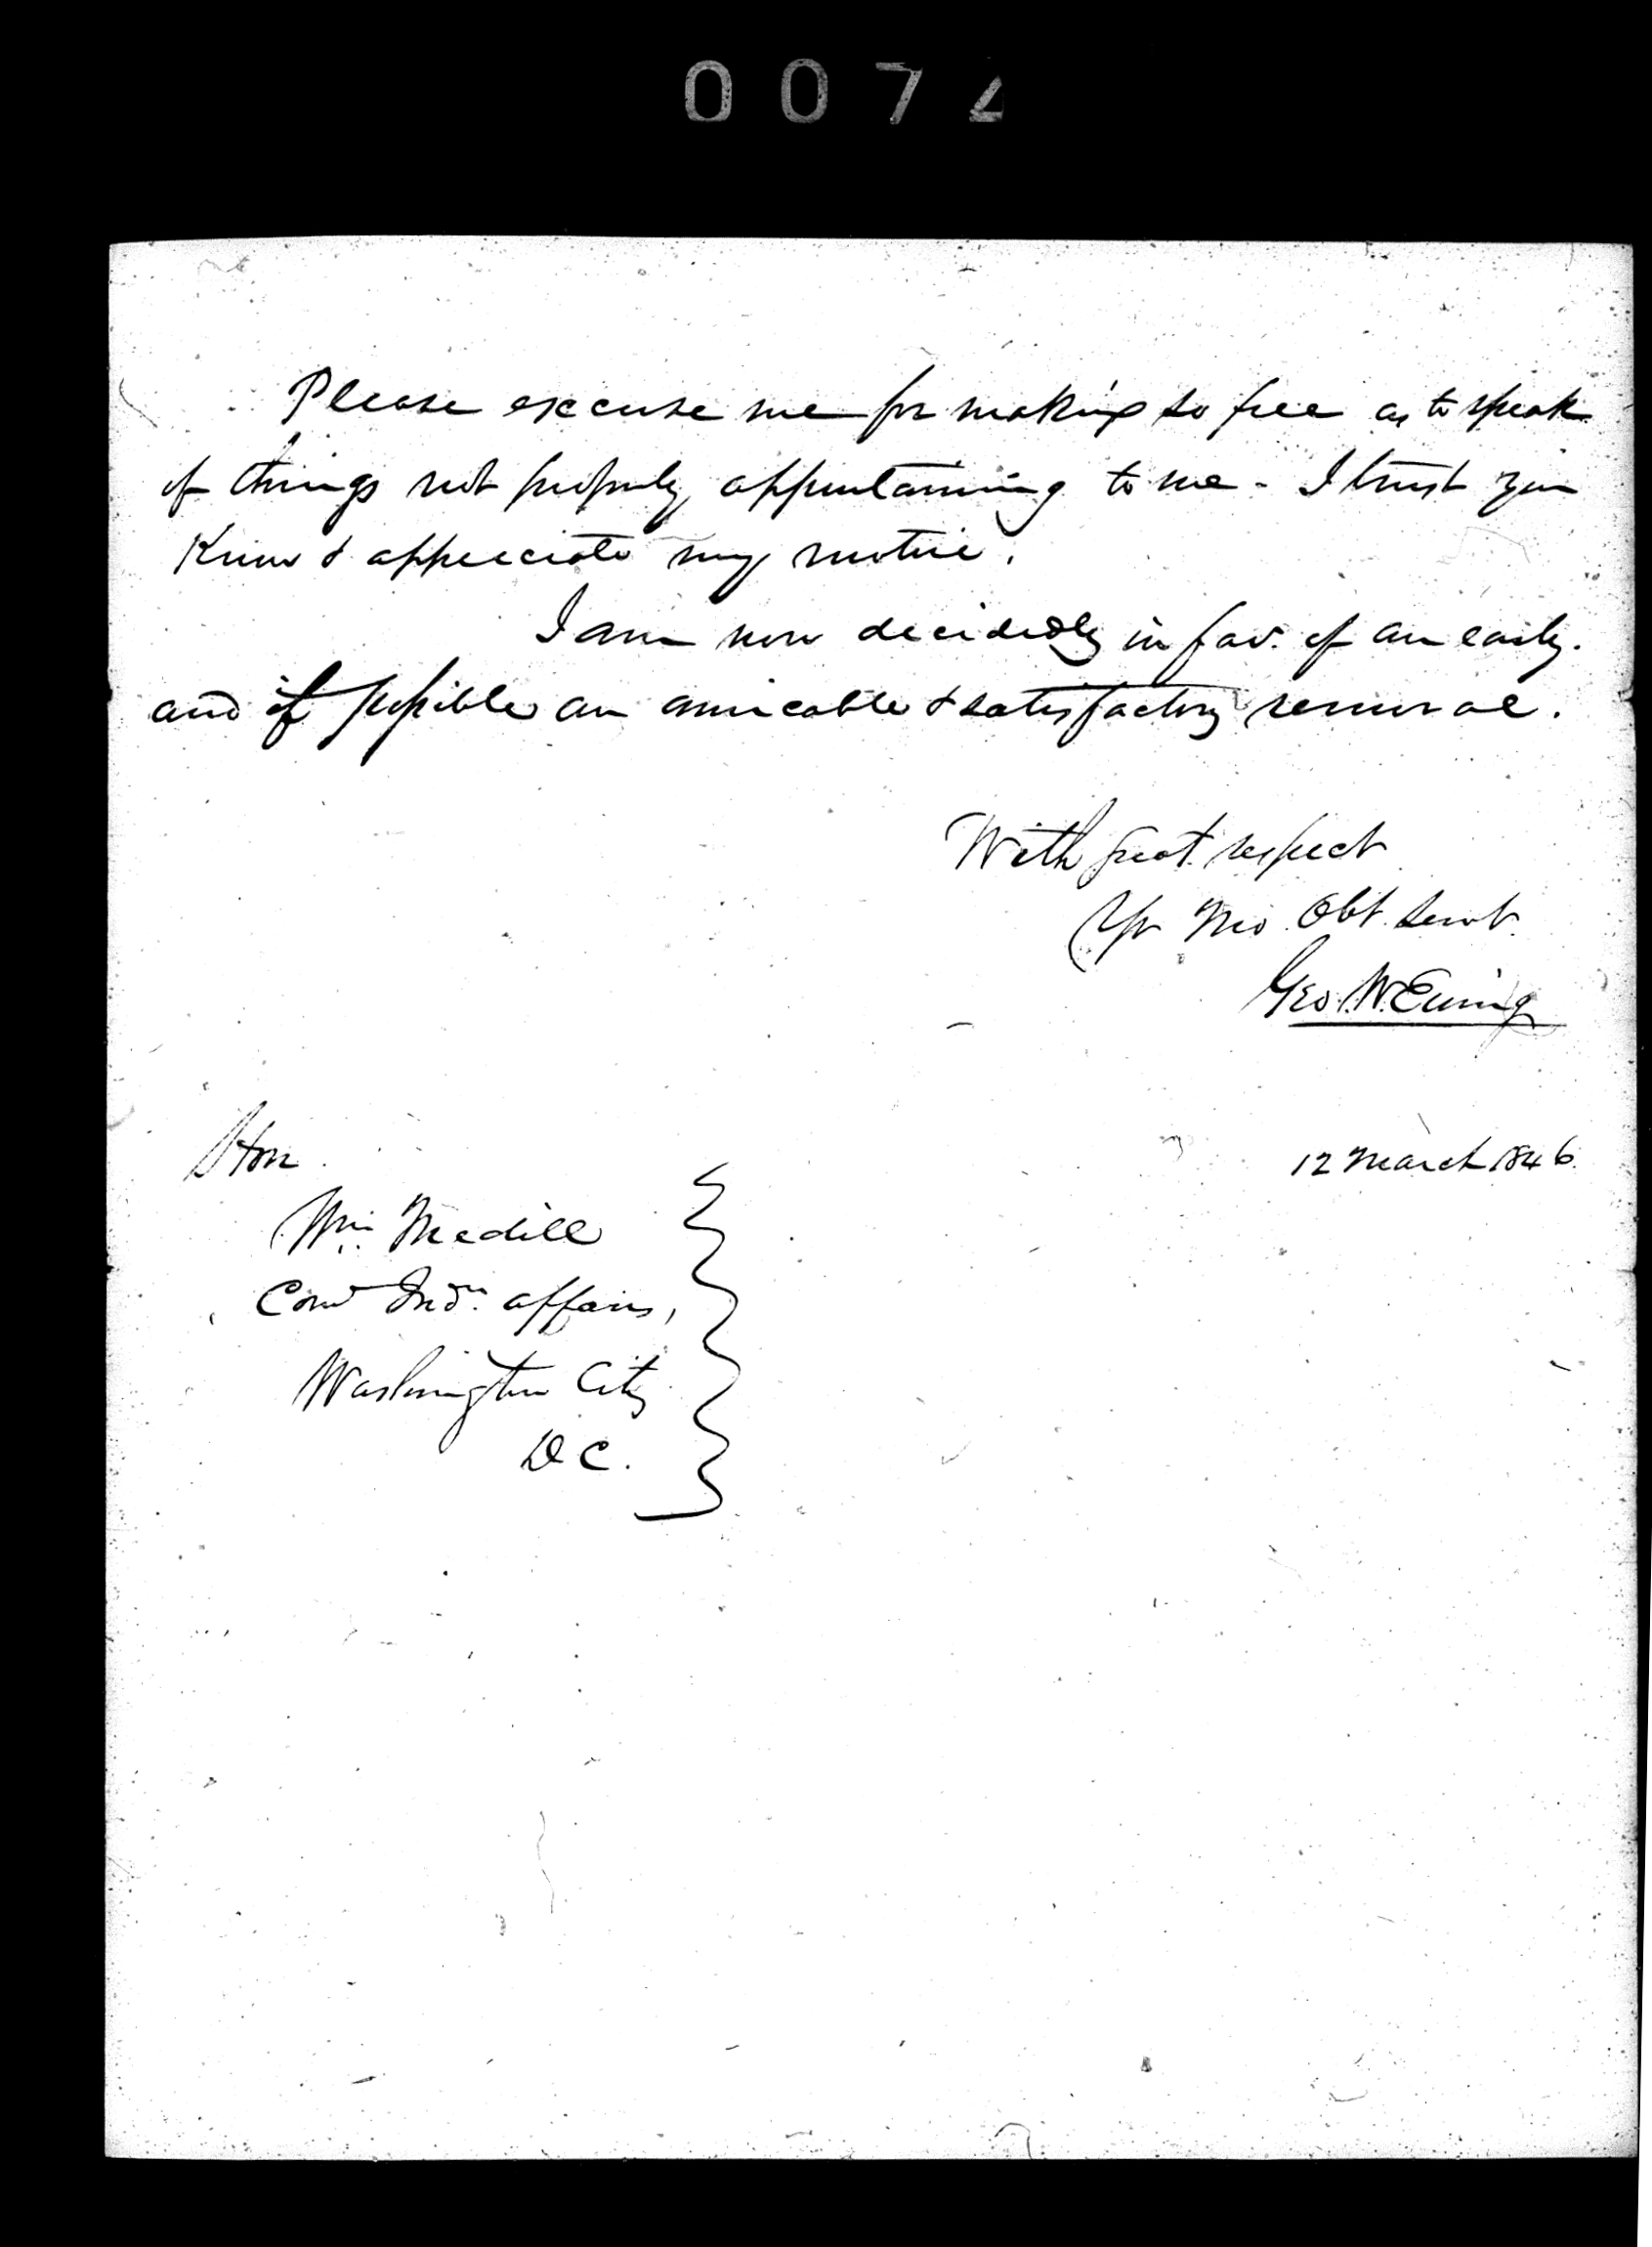 007
Please excuse me for making so free as to speak
of things not properly appertaining to me - I trust you
Know & appreciate my motive.
I am now decidedly in fav. of an early.
and if possible an amicable & satisfactory removal.
With great respect
Yr Mo Obt Servt.
Geo. W. Ewing
Hon.
12 March 1846.
Wm. Medill
Comr Indn. affairs,
Washington City
D C.